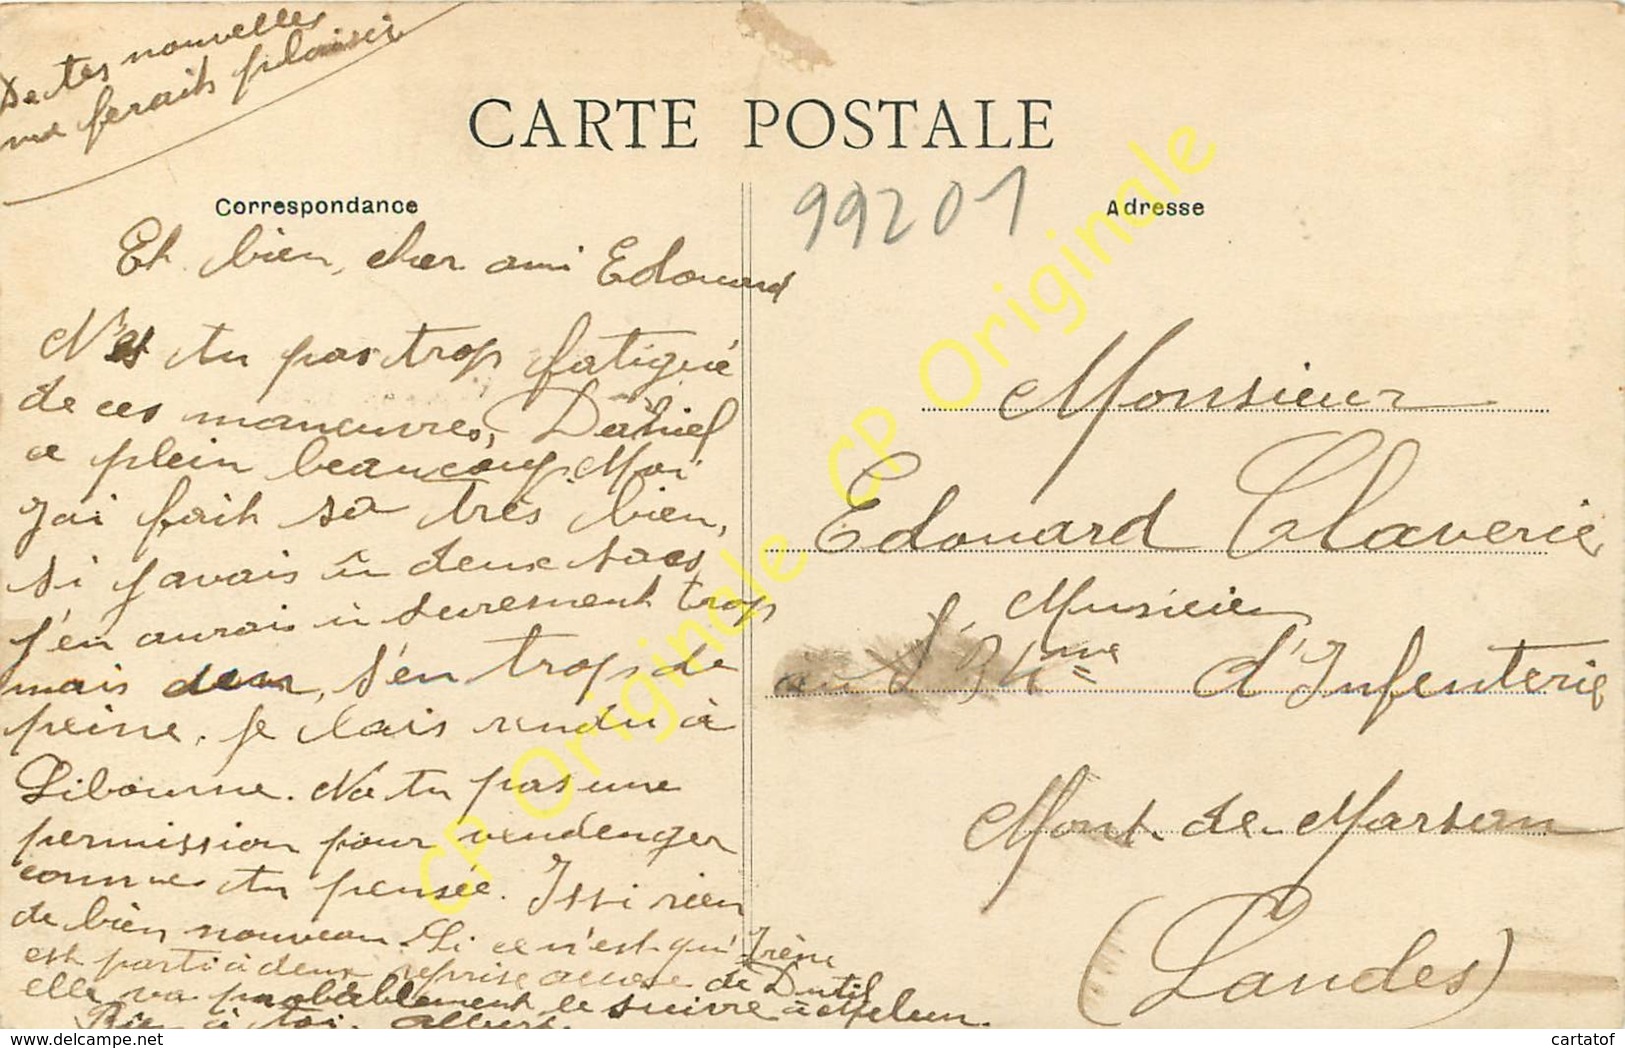 De tes nouvelles
me ferait plaisir
CARTE POSTALE
Correspondance
99201
Adresse
Eh bien, cher ami Edouard
N'es tu pas trop fatigué
de ces maneuvres, Daniel
a plein beaucoup. Moi
j'ai fait sa très bien,
si j'avais û deux sacs
j'en aurais û surement trop
mais s'en trop de
peine. Je lais rendu à
Libourne. Na tu pas une
permission pour vendenger
comme tu pensée. Issi rien
de bien nouveau. Si ce n'est qu'Irène
est parti à deux reprise de Dutil
elle va probablement le suivre à Melun.
Rie à toi. Albert
Monsieur
Edouard Claverie
Musicien
au 34me d'Infenterie
Mont de Marsan
(Landes)
CP Originale
CP Originale
cartatof